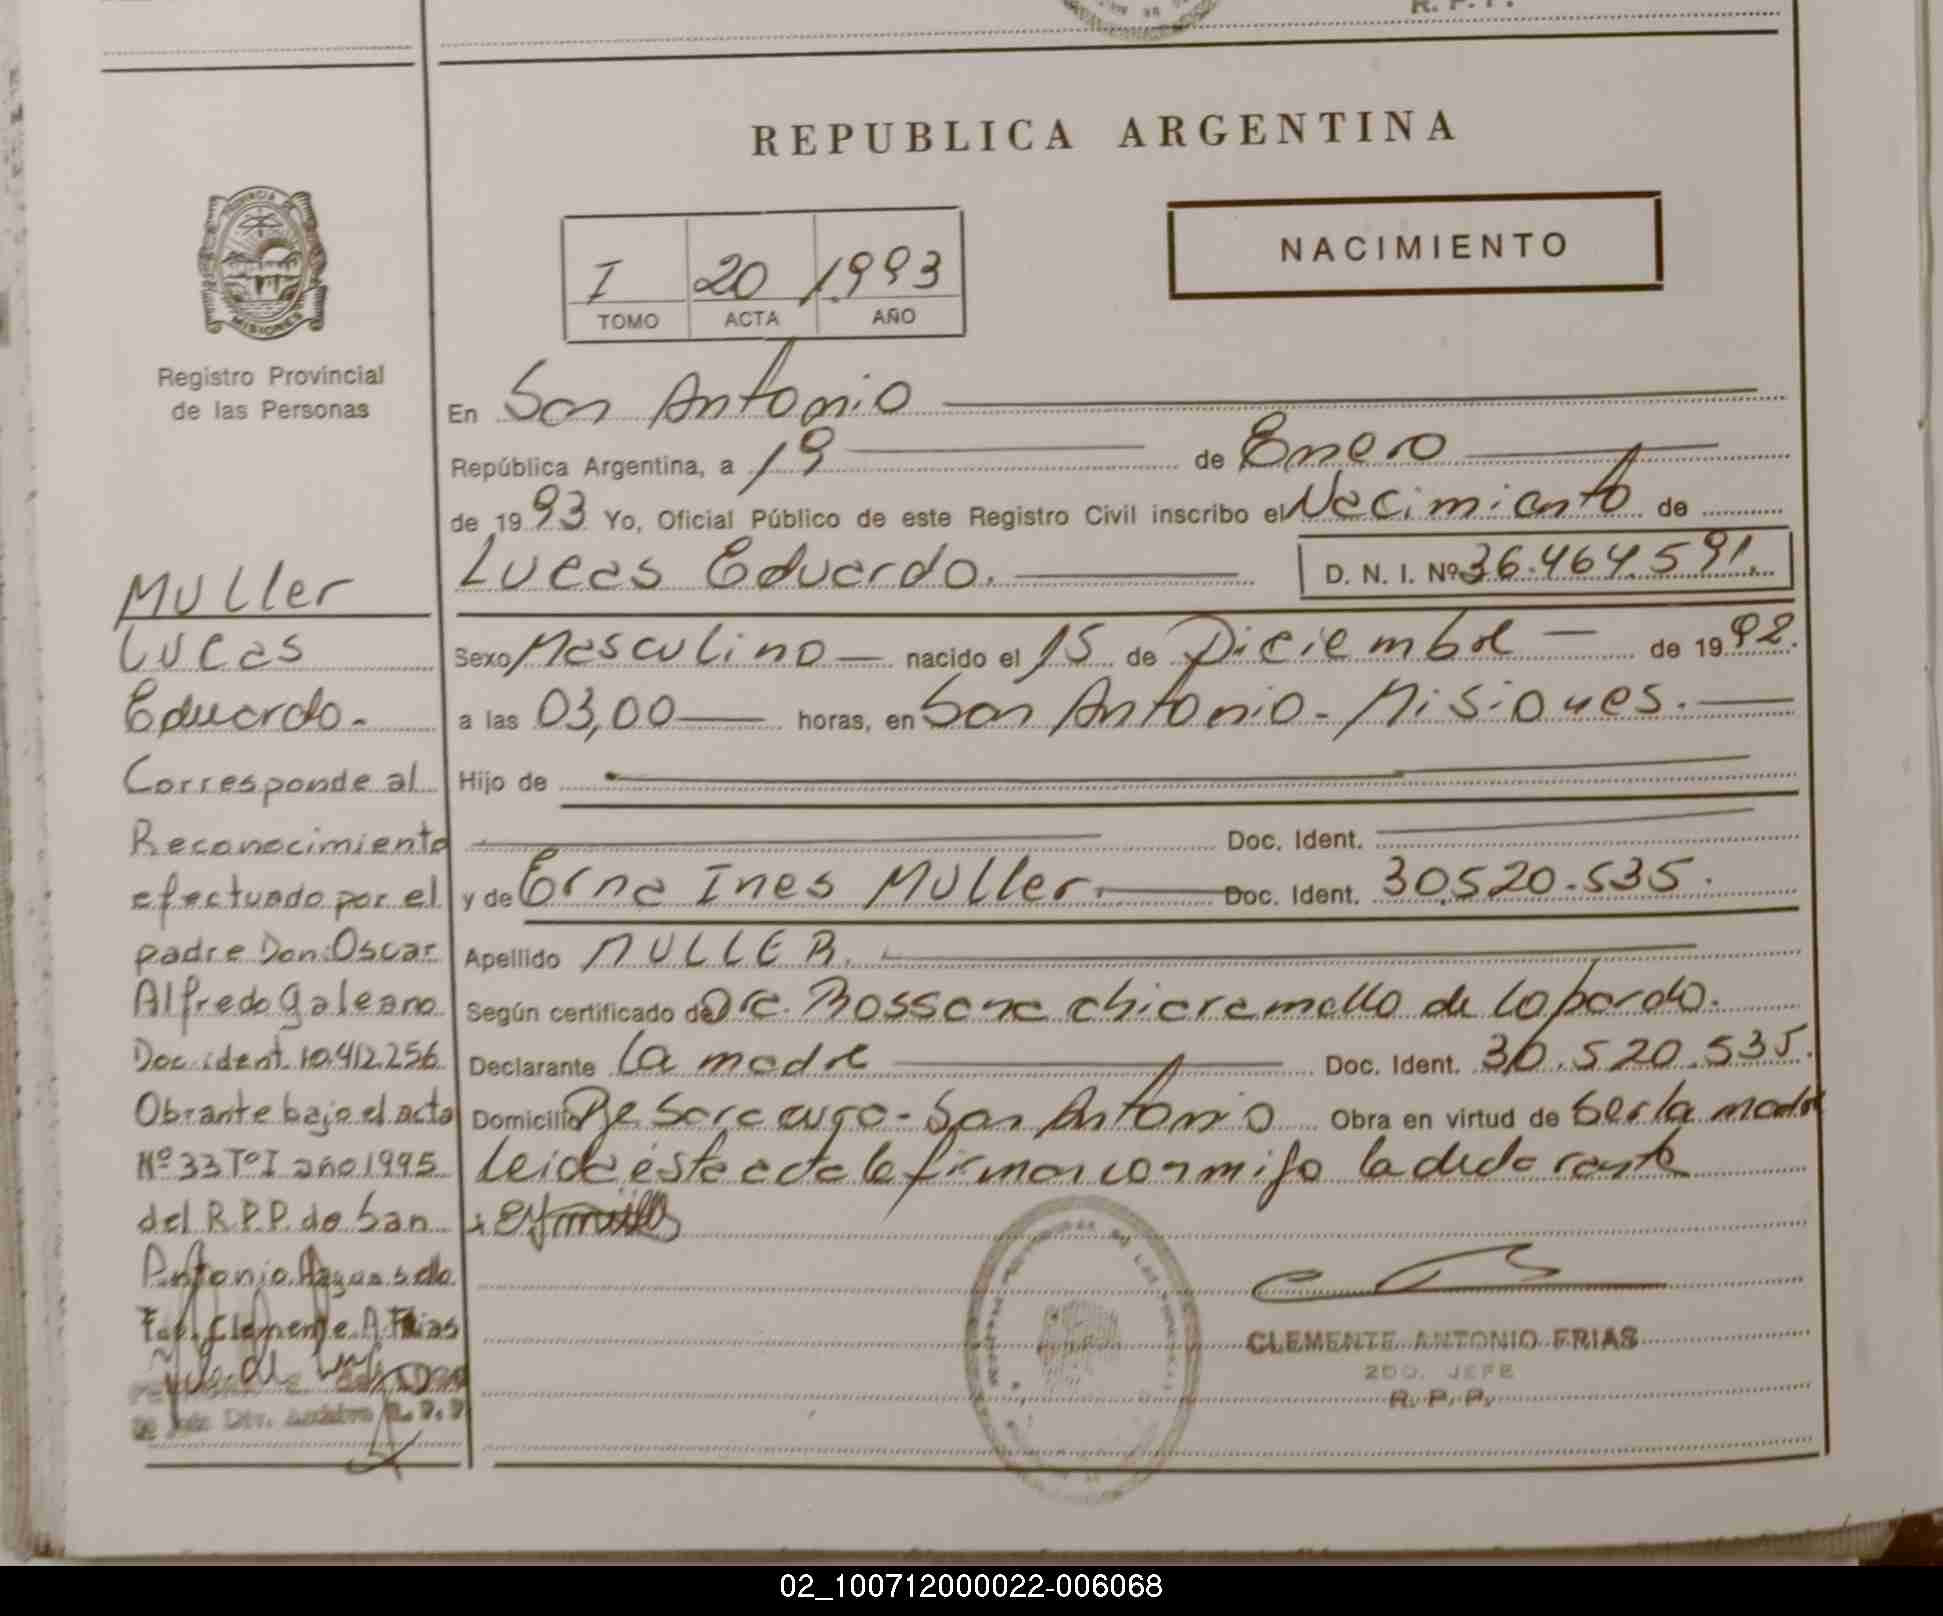 R. P. P.
REPUBLICA ARGENTINA
PROVINCIA DE
MISIONES
Registro Provincial
de las Personas
I 20 1.993
TOMO ACTA AÑO
NACIMIENTO
En San Antonio
República Argentina, a 19 de Enero
de 1993 Yo, Oficial Público de este Registro Civil inscribo el Nacimiento de
Lucas Eduardo. D. N. I. Nº 36.464.591.
Sexo Masculino nacido el 15 de Diciembre de 1992.
a las 03,00 horas, en San Antonio - Misiones.
Hijo de
Doc. Ident.
y de Erna Ines Muller. Doc. Ident. 30.520.535.
Apellido MULLER.
Según certificado de Dra. Rossana Chiaramello de Lopardo.
Declarante La madre Doc. Ident. 30.520.535.
Domicilio San Antonio Obra en virtud de Ser la madre
Leida ésta acta la firman conmigo la declarante
CLEMENTE ANTONIO FRIAS
2DO. JEFE
R. P. P.
Muller
Lucas
Eduardo.-
Corresponde al
Reconocimiento
efectuado por el
padre Don: Oscar
Alfredo Galeano
Doc. ident. 10.412.256
Obrante bajo el acta
Nº 33 Tº I año 1995
del R.P.P. de San
Antonio
Clemente A. Frias
Div. Archivo R. P. P.
02_100712000022-006068